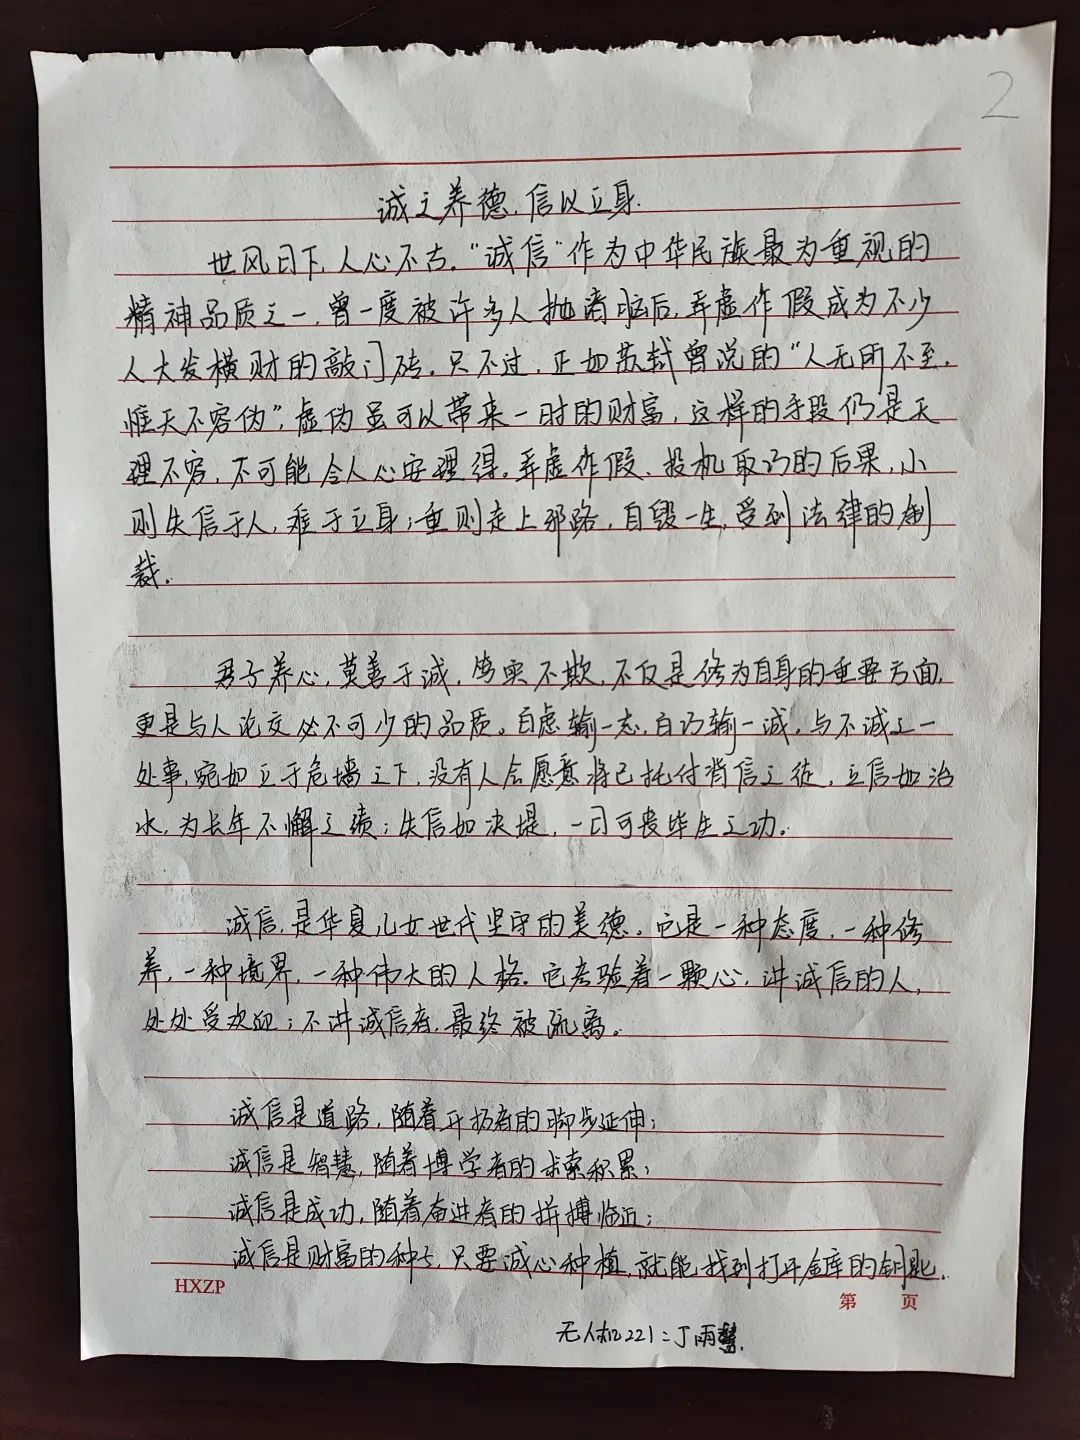 2
诚之养德,信以立身.
世风日下,人心不古。"诚信"作为中华民族最为重视的
精神品质之一,曾一度被许多人抛诸脑后,弄虚作假成为不少
人大发横财的敲门砖。只不过,正如苏轼曾说的"人无所不至,
惟天不容伪",虚伪虽可以带来一时的财富,这样的手段仍是天
理不容,不可能令人心安理得。弄虚作假、投机取巧的后果,小
则失信于人,难于立身;重则走上邪路,自毁一生,受到法律的制
裁.
君子养心,莫善于诚,笃实不欺,不仅是修为自身的重要方面,
更是与人论交必不可少的品质。自虑输一志,自巧输一诚,与不诚之一
处事,宛如立于危墙之下,没有人会愿意将己托付消信之徒,立信如治
水,为长年不懈之绩;失信如决堤,一日可丧毕生之功。
诚信,是华夏儿女世代坚守的美德。它是一种态度,一种修
养,一种境界,一种伟大的人格。它考验着一颗心,讲诚信的人,
处处受欢迎;不讲诚信者,最终被流离。
诚信是道路,随着开拓者的脚步延伸;
诚信是智慧,随着博学者的求索积累;
诚信是成功,随着奋进者的拼搏临近;
诚信是财富的种子,只要诚心种植,就能找到打开金库的钥匙.
HXZP
第 页
无人机221:丁雨